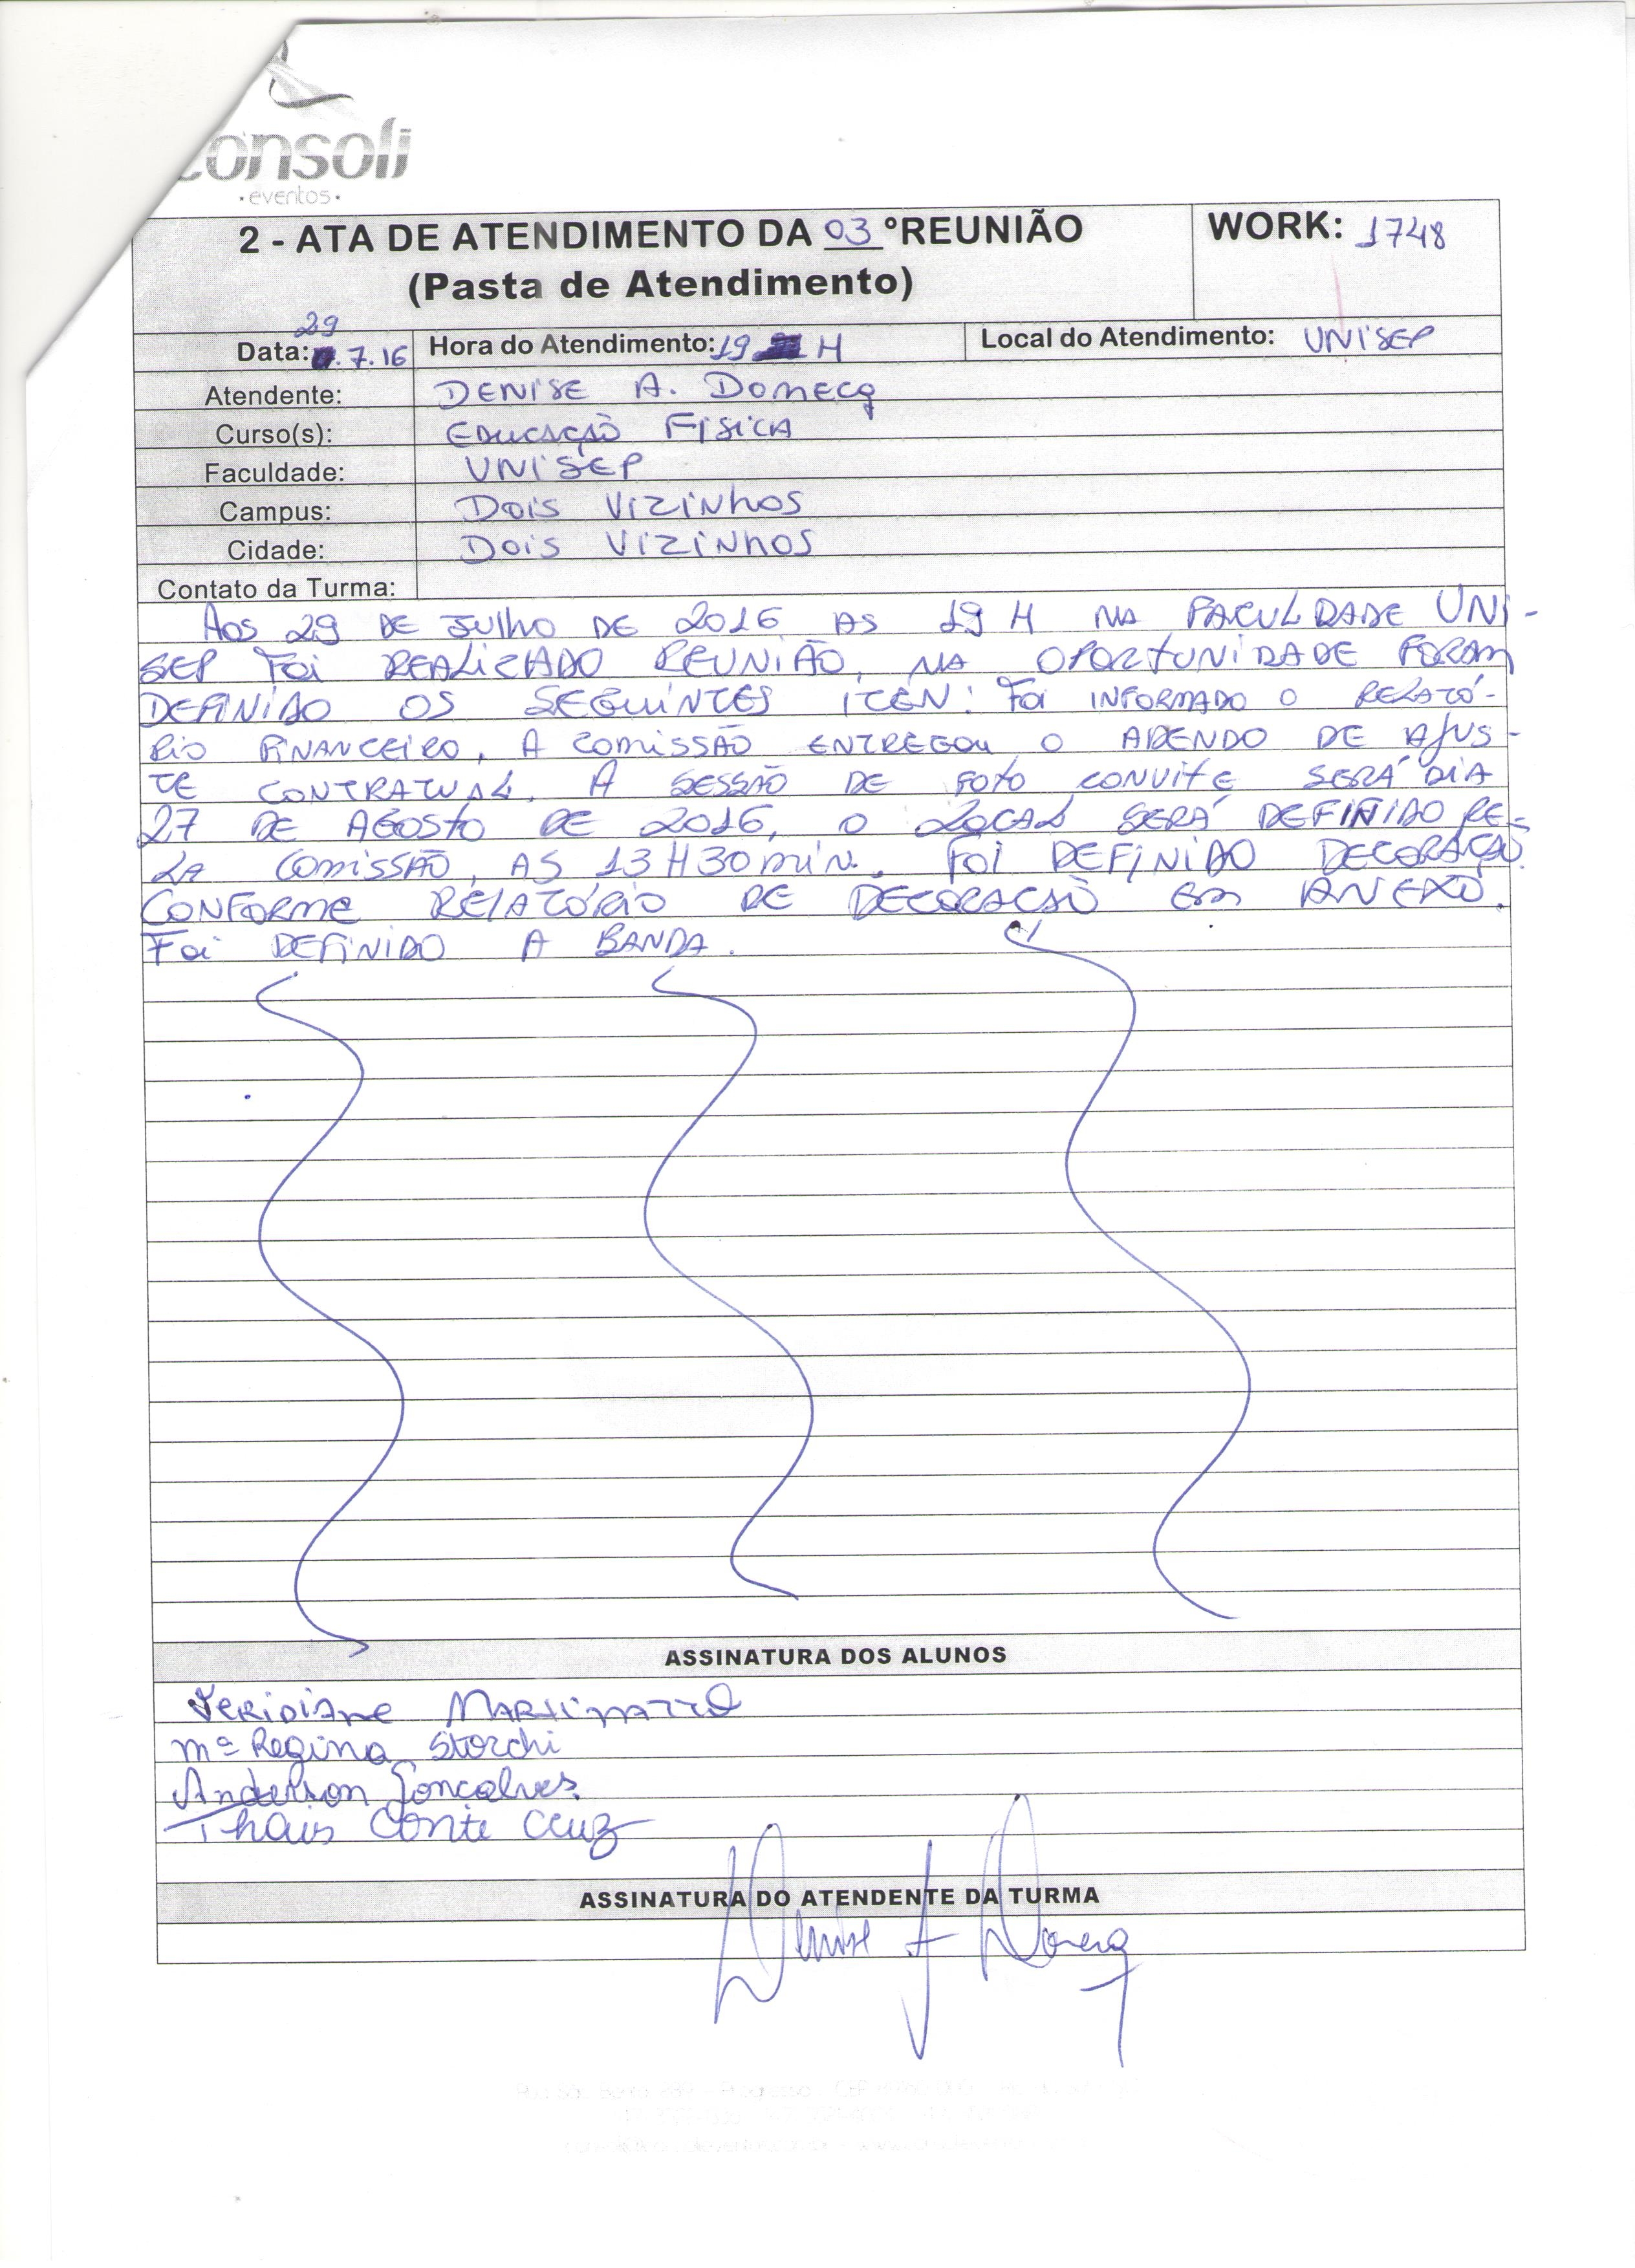 consoli
•eventos•
2 - ATA DE ATENDIMENTO DA 03 ºREUNIÃO
(Pasta de Atendimento)
WORK: 1748
29
Data: .7.16 Hora do Atendimento: 19 H Local do Atendimento: UNISEP
Atendente: DENISE A. DOMECQ
Curso(s): EDUCAÇÃO FISICA
Faculdade: UNISEP
Campus: DOIS VIZINHOS
Cidade: DOIS VIZINHOS
Contato da Turma:
AOS 29 DE JULHO DE 2016 AS 19 H NA FACULDADE UNI-
SEP FOI REALIZADO REUNIÃO, NA OPORTUNIDADE FORAM
DEFINIDO OS SEGUINTES ITEN: FOI INFORMADO O RELATÓ-
RIO FINANCEIRO, A COMISSÃO ENTREGOU O ADENDO DE AJUS-
TE CONTRATUAL. A SESSÃO DE FOTO CONVITE SERÁ DIA
27 DE AGOSTO DE 2016, O LOCAL SERÁ DEFINIDO PE-
LA COMISSÃO, AS 13 H 30 min. FOI DEFINIDO DECORAÇÃO
CONFORME RELATÓRIO DE DECORAÇÃO EM ANEXO.
FOI DEFINIDO A BANDA.
ASSINATURA DOS ALUNOS
Veridiane Martinazzo
Mª Regina Storchi
Anderson Gonçalves
Thais Conte Cruz
ASSINATURA DO ATENDENTE DA TURMA
Denise A Domecq